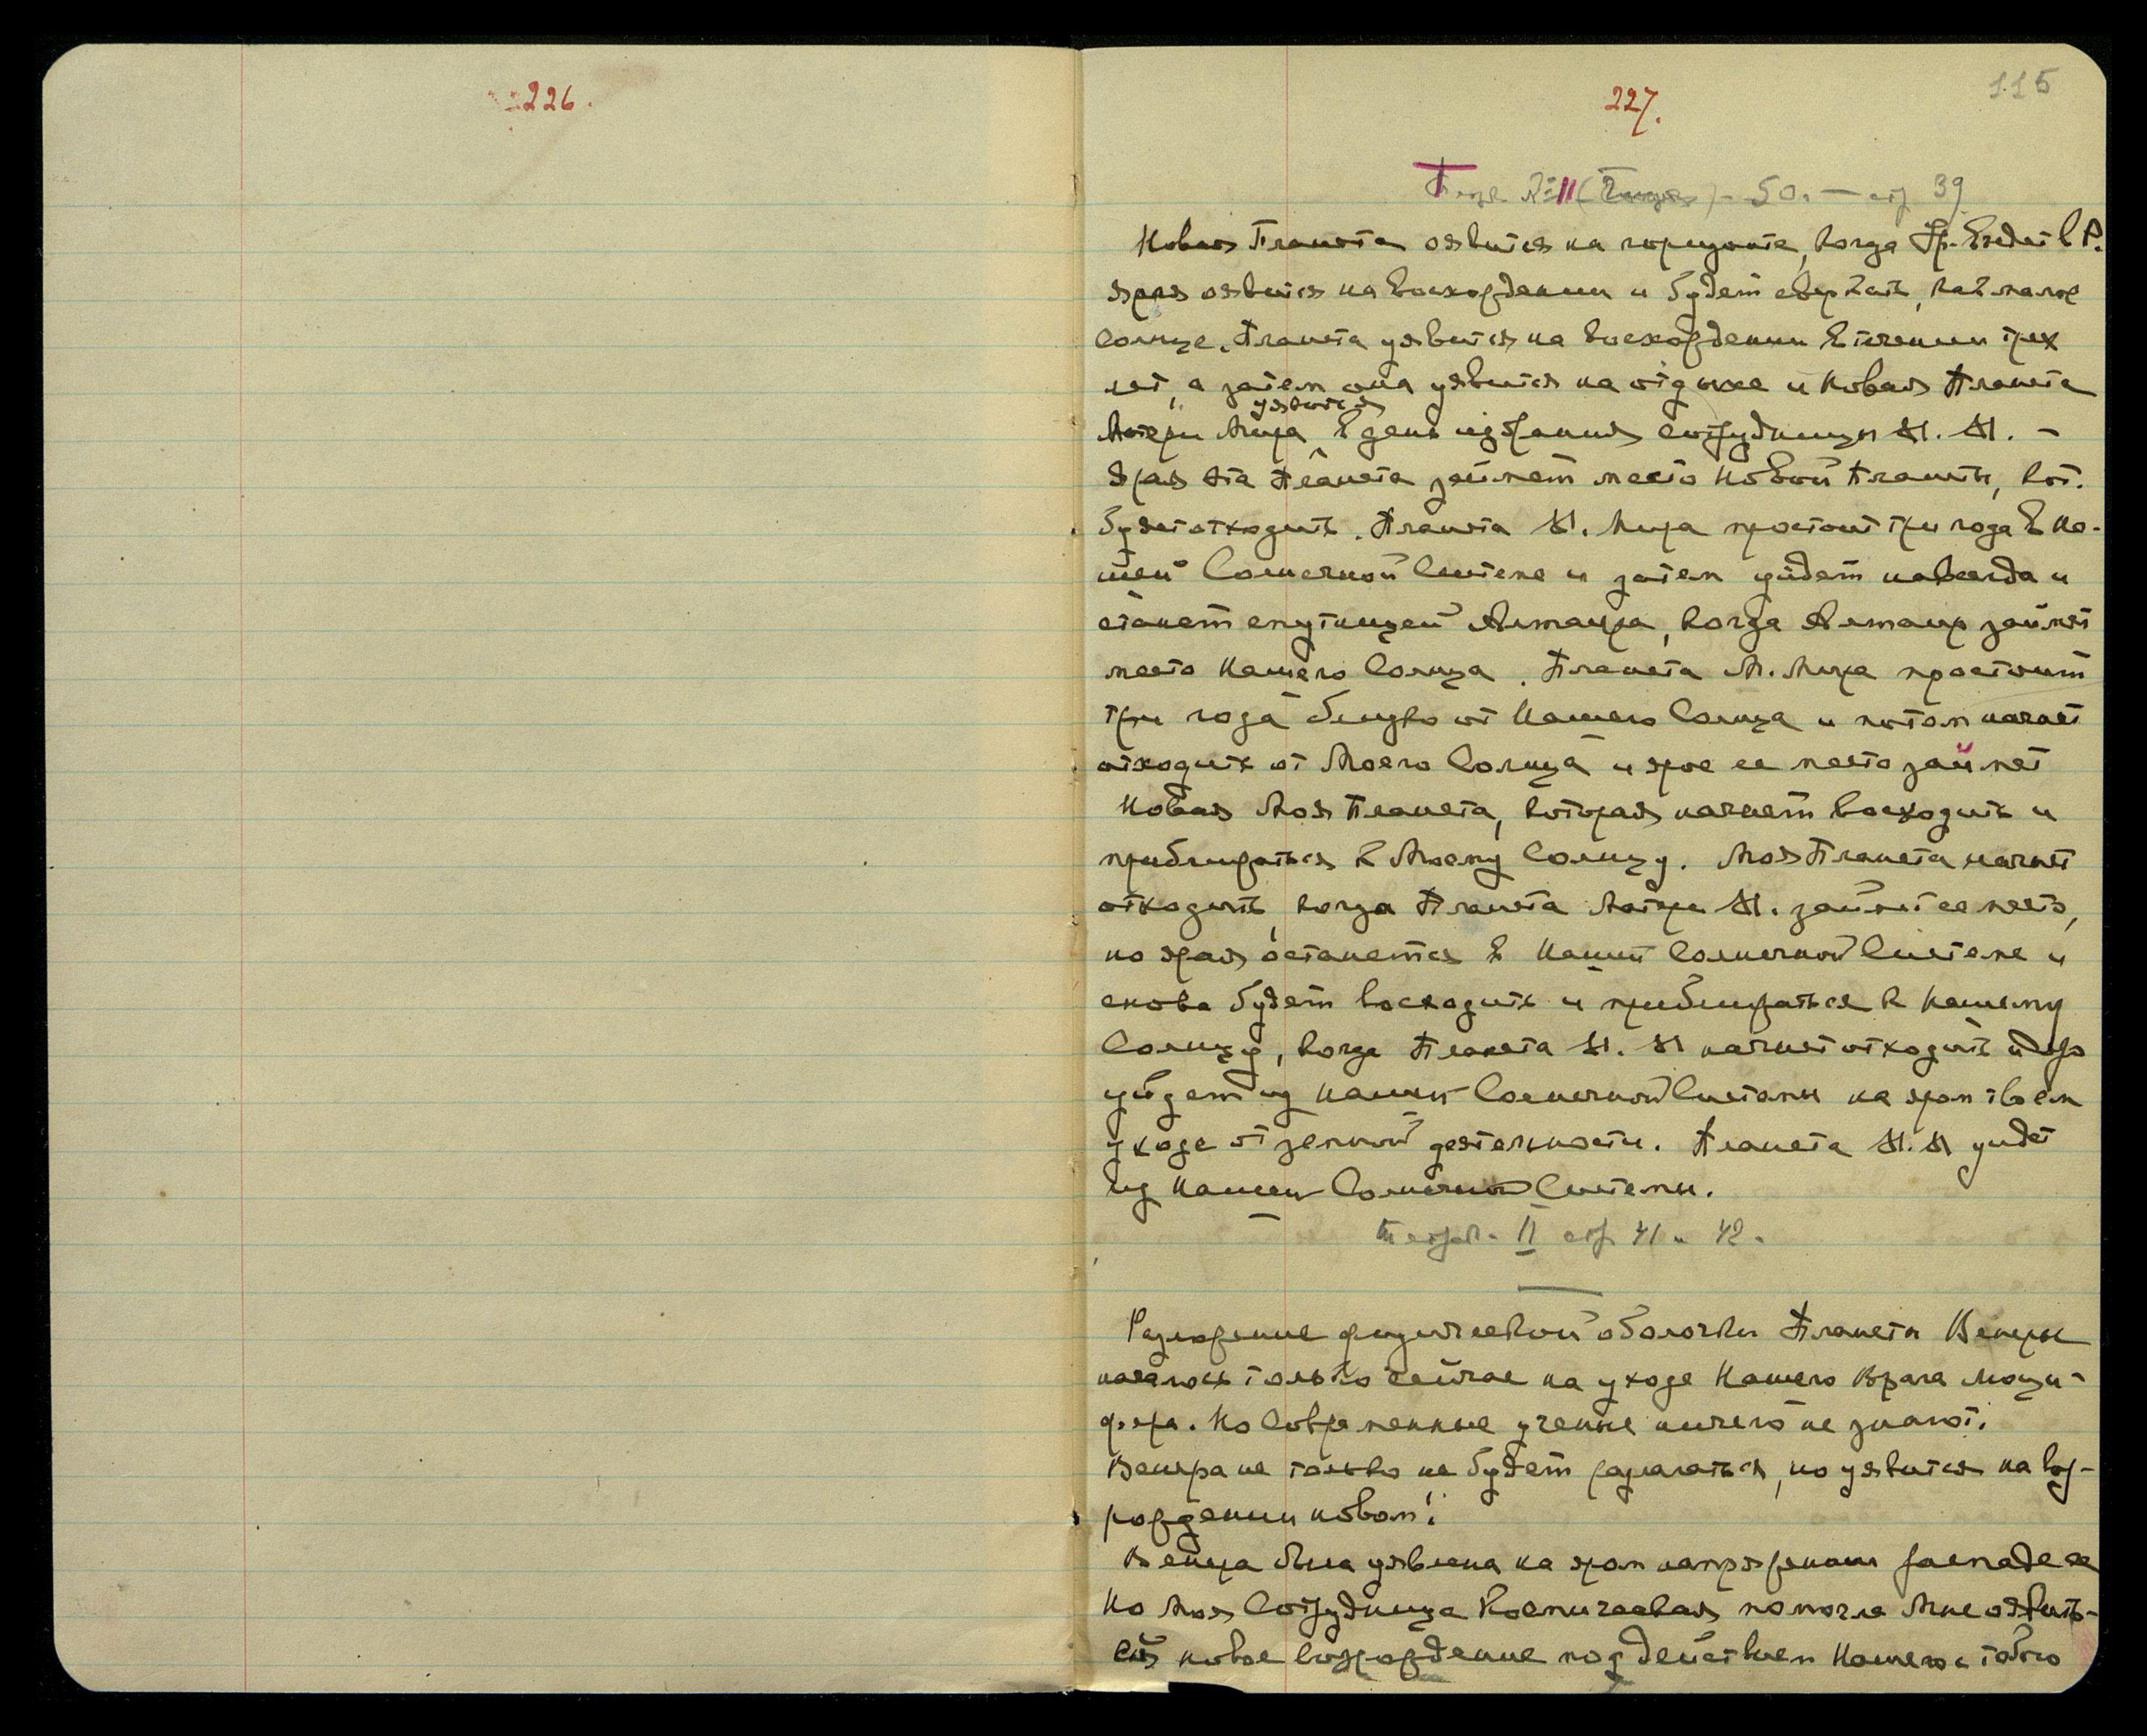 226.
227.
115
50. — стр 39
Новая Планета оявится на горизонте, когда Ур. въедет в Р.
яро оявится на восхождении и будет сверкать, как малое
солнце. Планета уявится на восхождении в течении трех
лет, а затем она уявится на отдыхе и Новая Планета
уявится
Матери Мира в день избрания сотрудницы М. М. –
Ярая эта Планета займет место Новой Планеты, кот.
будет отходить. Планета М. Мира простоит три года в На-
шей Солнечной Системе и затем уйдет навсегда и
станет спутницей Альтаира, когда Альтаир займет
место Нашего Солнца. Планета М. Мира простоит
три года близко от Нашего Солнца и потом начнет
отходить от Моего Солнца и ярое ее место займет
Новая Моя Планета, которая начнет восходить и
приближаться к Моему Солнцу. Моя Планета начнет
отходить, когда Планета Матери М. займет ее место,
но ярая останется в Нашей Солнечной Системе и
снова будет восходить и приближаться к Нашему
Солнцу, когда Планета М. М начнет отходить и
уйдет из Нашей Солнечной Системы на яром твоем
уходе от земной деятельности. Планета М. М уйдет
из Нашей Солнечной Системы.
Тетрадь II стр 41 и 42.
Разложение физической оболочки Планеты Венеры
началось только сейчас на уходе Нашего Врага Люци-
фера. Но Современные ученые ничего не знают.
Венера не только не будет разлагаться, но уявится на воз-
рождении новом!
Венера была уявлена на яром напряжении распада ее
Но Моя Сотрудница Космическая помогла Мне оявить-
ся новое возрождение под действием Нашего с тобою